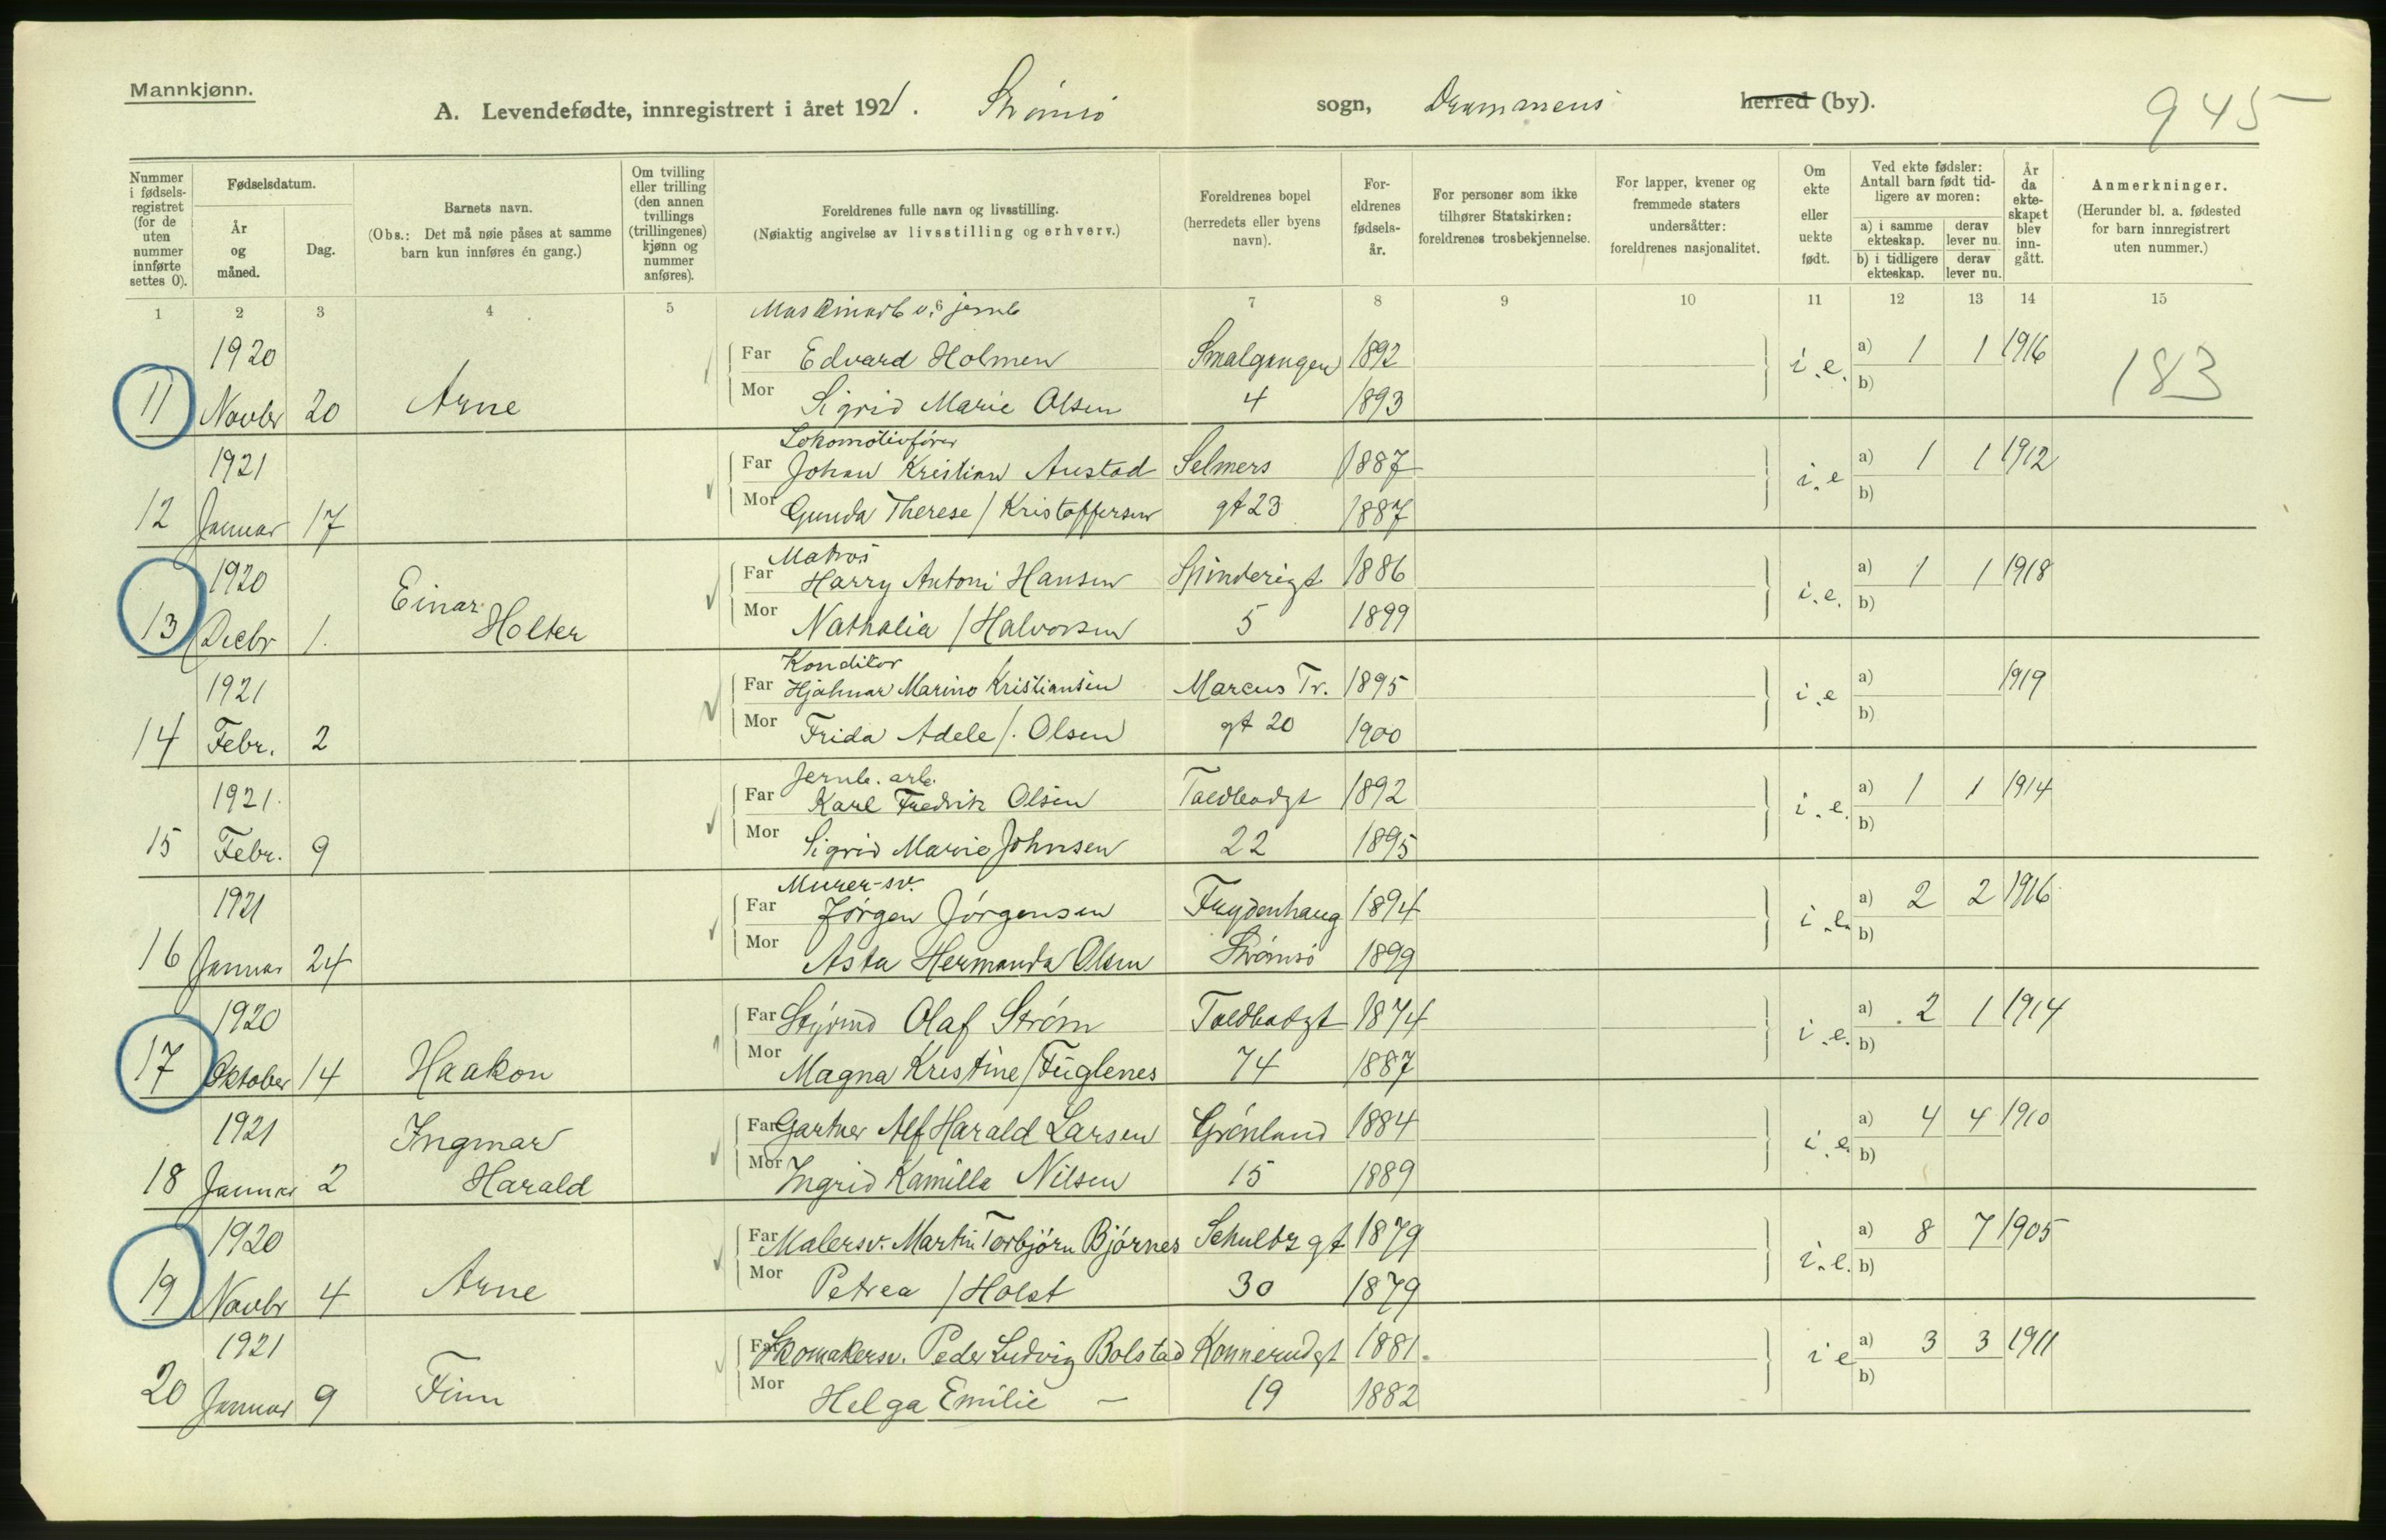 Mannkjønn.
A. Levendefødte, innregistrert i året 1921. Strømsø sogn, Drammens herred (by). 945
Nummer i fødselsregistret (for de uten nummer innførte settes 0).
Fødselsdatum.
År og måned.
Dag.
Barnets navn.
(Obs.: Det må nøie påses at samme barn kun innføres én gang.)
Om tvilling eller trilling (den annen tvillings (trillingenes) kjønn og nummer anføres).
Foreldrenes fulle navn og livsstilling.
(Nøiaktig angivelse av livsstilling og erhverv.)
Foreldrenes bopel
(herredets eller byens navn).
Foreldrenes fødselsår.
For personer som ikke tilhører Statskirken: foreldrenes trosbekjennelse.
For lapper, kvener og fremmede staters undersåtter: foreldrenes nasjonalitet.
Om ekte eller uekte født.
Ved ekte fødsler: Antall barn født tidligere av moren:
a) i samme ekteskap. derav lever nu.
b) i tidligere ekteskap. derav lever nu.
År da ekteskapet blev inngått.
Anmerkninger.
(Herunder bl. a. fødested for barn innregistrert uten nummer.)
1 2 3 4 5 6 7 8 9 10 11 12 13 14 15
Maskinarb v. jernb
1920 Far Edvard Holmen Smalgangen 1892 i.e. a) 1 1 1916 183
11 Novbr 20 Arne Mor Sigrid Marie Olsen 4 1893 b)
Lokomotivfører
1921 Far Johan Kristian Austad Selmers 1887 i.e a) 1 1 1912
12 Januar 17 Mor Gunda Therese / Kristoffersen gt 23 1887 b)
Matros
1920 Far Harry Antoni Hansen Spinderigt 1886 i.e. a) 1 1 1918
13 Decbr 1. Einar Holter Mor Nathalia / Halvorsen 5 1899 b)
Konditor
1921 Far Hjalmar Marino Kristiansen Marcus Tr. 1895 i.e a) 1919
14 Febr. 2 Mor Frida Adele /. Olsen gt 20 1900 b)
Jernb. arb.
1921. Far Karl Fredrik Olsen Toldbodgt 1892 i.e. a) 1 1 1914
15 Febr. 9 Mor Sigrid Marie Johnsen 22 1895 b)
Murer-sv.
1921 Far Jørgen Jørgensen Frydenhaug 1894 i.e. a) 2 2 1916
16 Januar 24 Mor Asta Hermanda Olsen Strømsø 1899 b)
1920 Far Olaf Strøm Toldbodgt 1874 i.e. a) 2 1 1914
17 Oktober 14 Haakon Mor Magna Kristine / Fuglenes 74 1887 b)
1921 Far Gartner Alf Harald Larsen Grønland 1884 i.e. a) 4 4 1910
18 Januar 2 Ingmar Harald Mor Ingrid Kamilla Nilsen 15 1889 b)
1920 Far Malersv. Martin Torbjørn Bjørnes Schultz gt 1879 i.e. a) 8 7 1905
19 Novbr 4 Arne Mor Petrea / Holst 30 1879 b)
1921 Far Skomakersv. Peder Ludvig Bolstad Konnerudgt 1881. i e a) 3 3 1911
20 Januar 9 Finn Mor Helga Emilie — 19 1882 b)